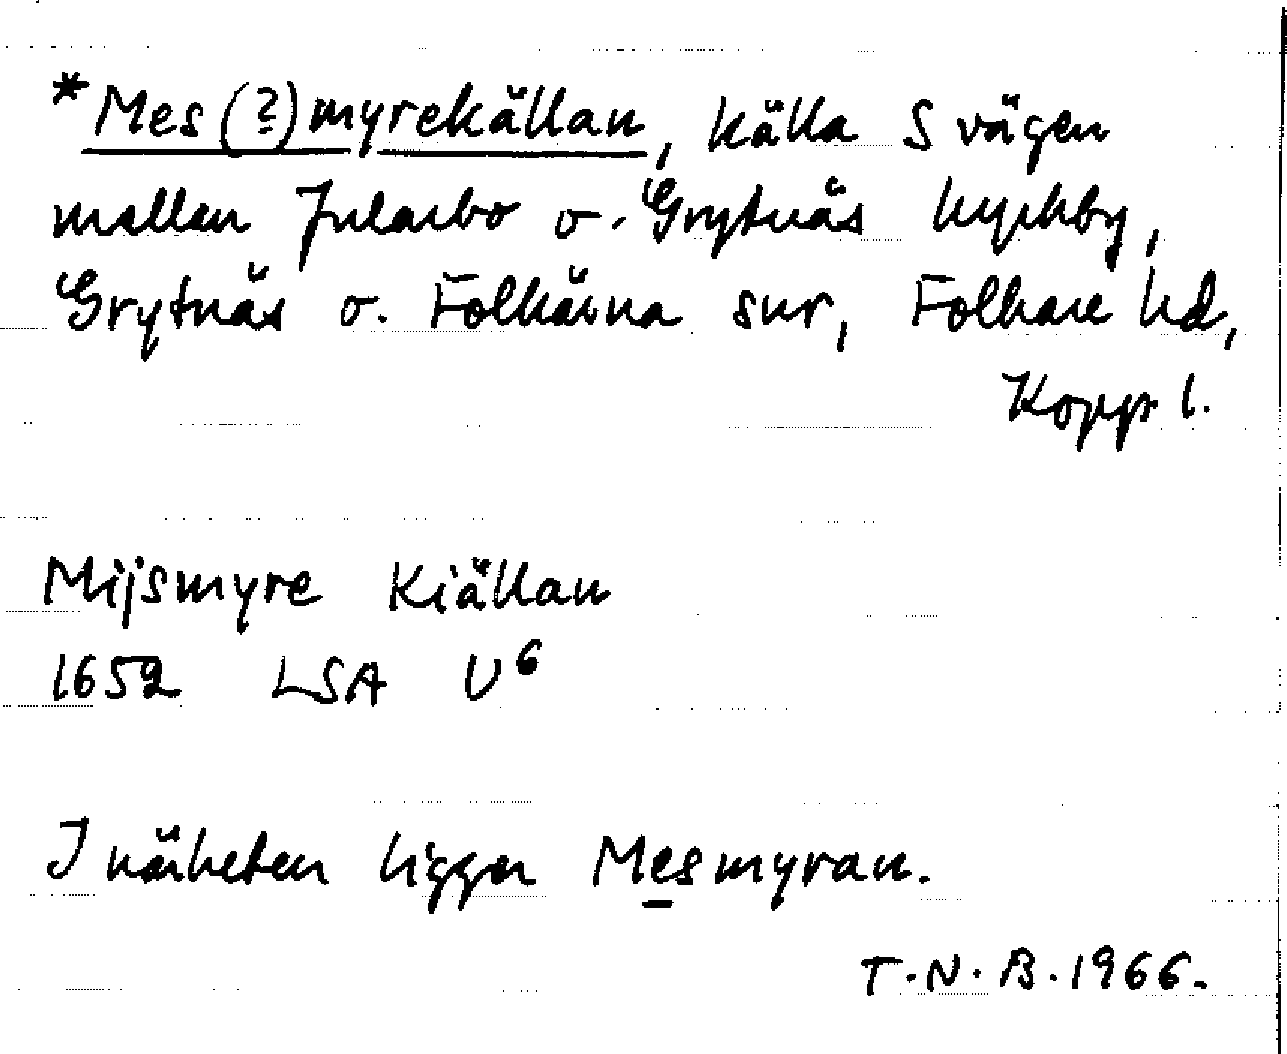 *Mes(?)myrekällan, källa S vägen
mellan Jularbo o. Grytnäs kyrkby,
Grytnäs o. Folkärna snr, Folkare hd,
Kopp l.
Mijsmyre Kiällan
1652 LSA U6
I närheten ligger Mesmyran.
T.N.B. 1966.